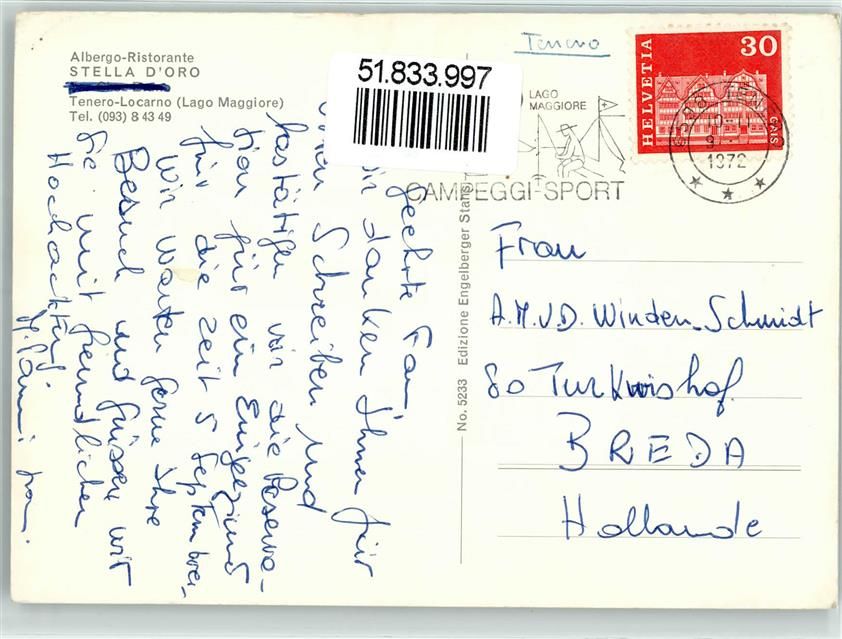 Albergo-Ristorante
STELLA D'ORO
Tenero-Locarno (Lago Maggiore)
Tel. (093) 8 43 49
Tenero
51.833.997
LAGO
MAGGIORE
CAMPEGGI-SPORT
HELVETIA
30
GAIS
1972
No. 5233 Edizione Engelberger Stans
geehrte Frau
wir danken Ihnen für
Schreiben und
bestätigen wir die Reserva-
tion für ein
für die Zeit 5 September-
Wir warten gerne Ihre
Besuch und grüssen wir
Sie mit freundlichen
Hochachtung
Frau
A.M.V.D. Winden-Schmidt
80 Turkwishof
BREDA
Hollande